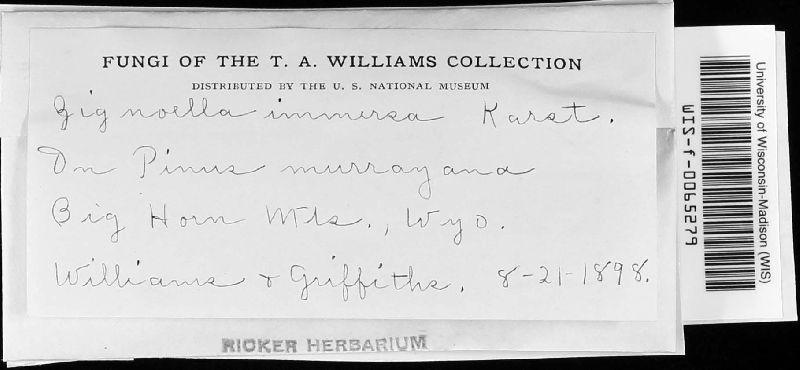 FUNGI OF THE T. A. WILLIAMS COLLECTION
DISTRIBUTED BY THE U. S. NATIONAL MUSEUM
Zignoella immersa Karst.
On Pinus murrayana
Big Horn Mts., Wyo.
Williams & Griffiths. 8-21-1898.
RICKER HERBARIUM
University of Wisconsin-Madison (WIS)
WIS-f-0065279